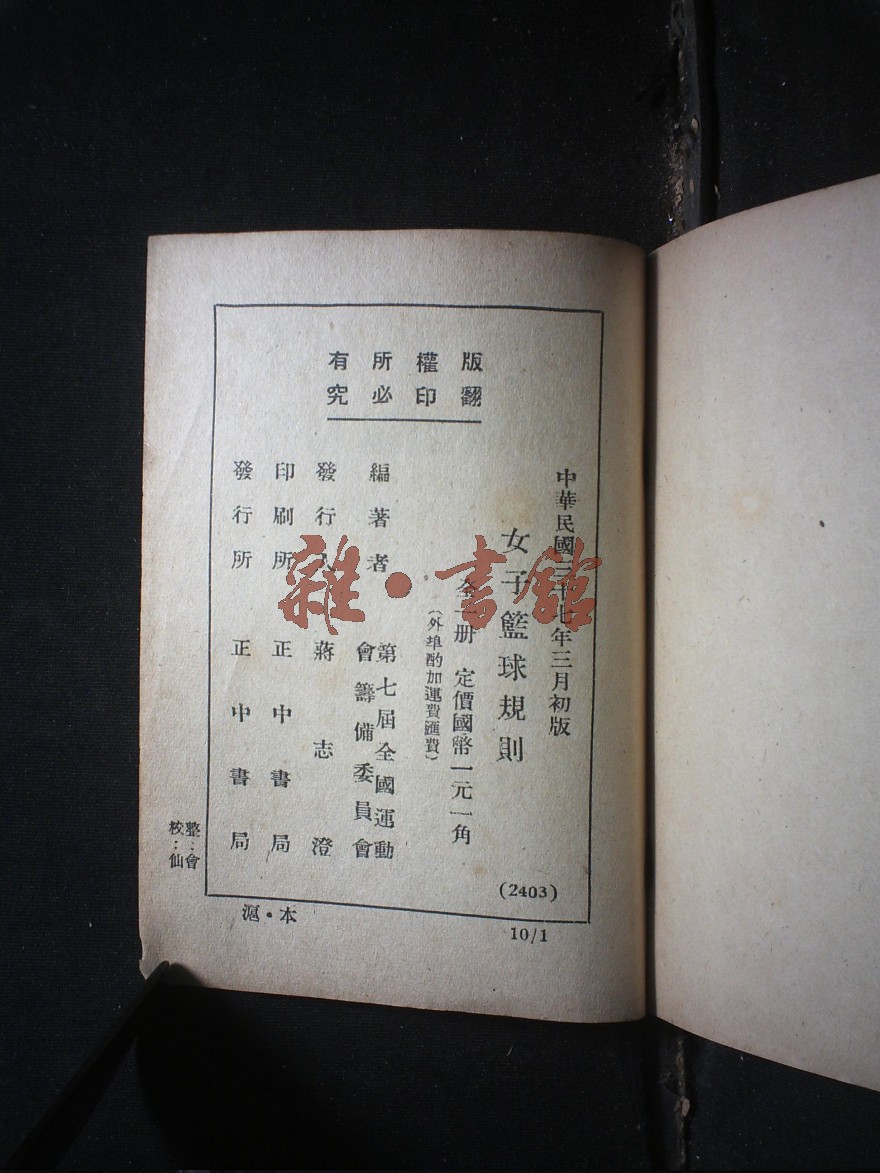 版權所有
翻印必究
中華民國三十七年三月初版
女子籃球規則
全一册 定價國幣一元一角
(外埠酌加運費匯費)
編著者 第七屆全國運動
會籌備委員會
發行人 蔣志澄
印刷所 正中書局
發行所 正中書局
(2403)
整：會
校：仙
滬・本
10/1
雜・書館